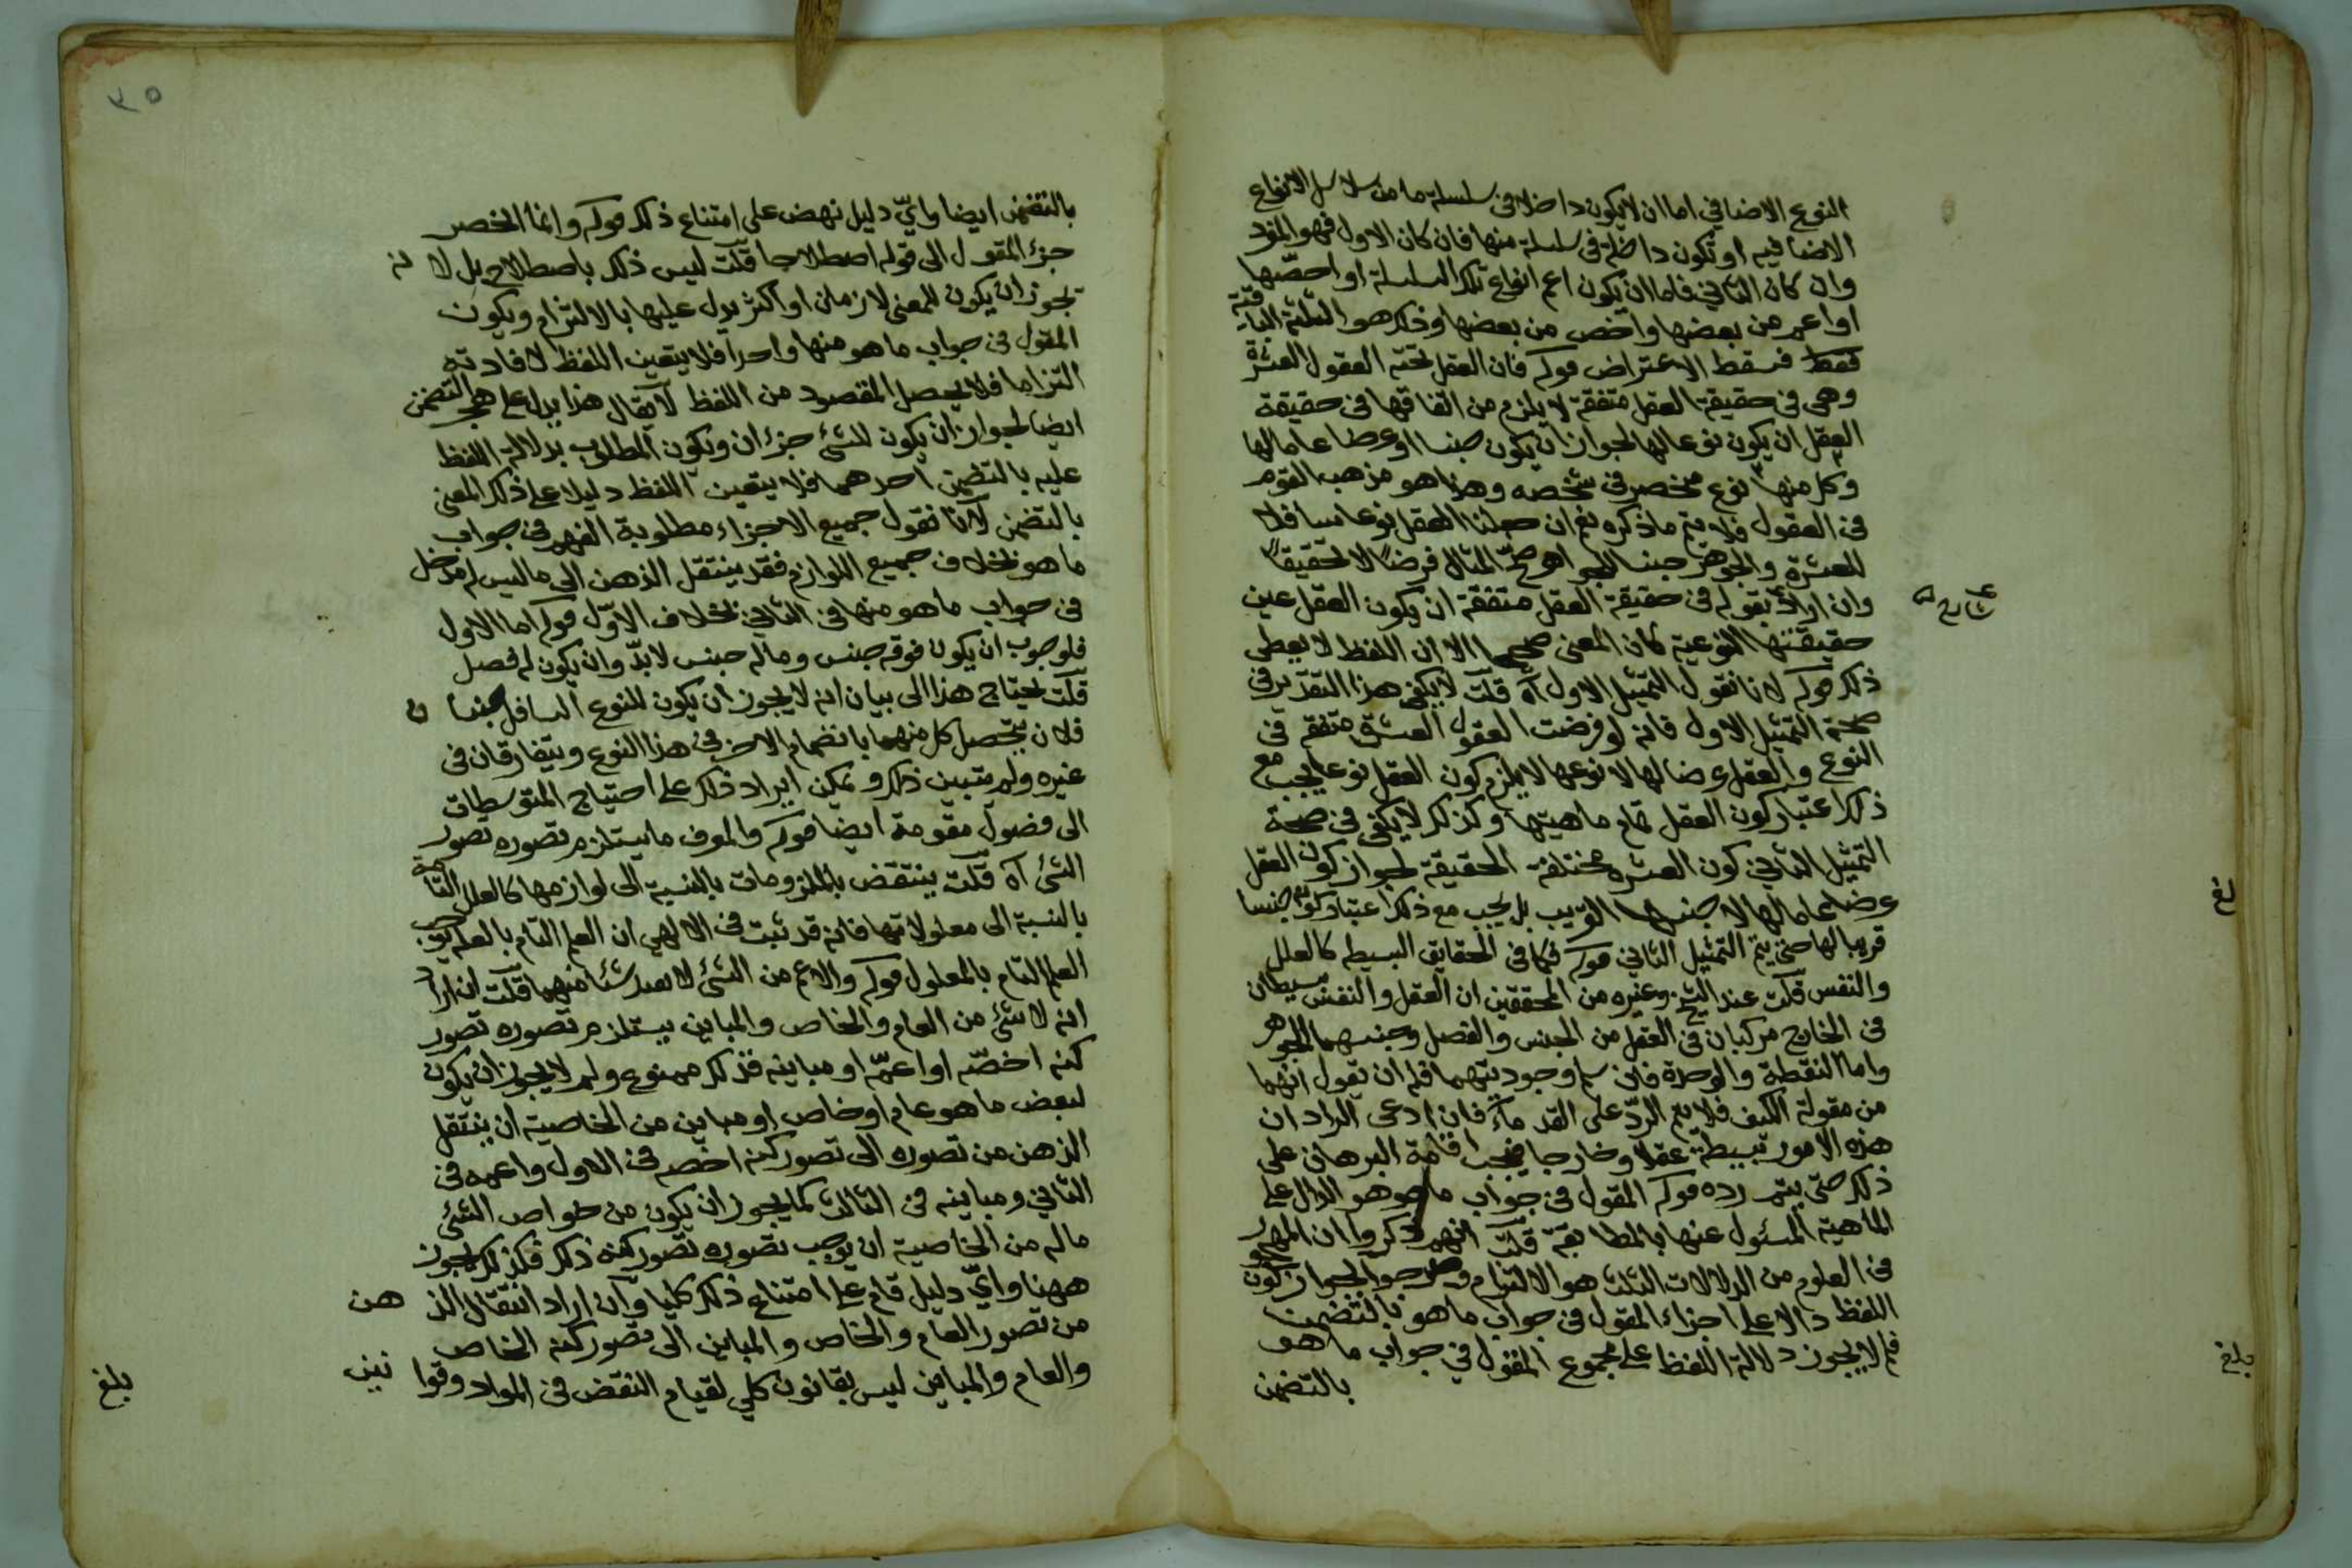 النوع الاضافي اما ان لا يكون داخلا فى سلسلة ما من سلاسل الانواع
الاضافيه او تكون داخلة فى سلسلة منها فان كان الاول فهو المفرد
وان كان الثاني فاما ان يكون اعم انواع تلك السلسلة او اخصّها
او اعم من بعضها واخص من بعضها وذلك هو الثلثة الباقية
فقط فسقط الاعتراض قوله فان العقل تحته العقول العشرة
وهى فى حقيقة العقل متفقة لا يلزم من اتفاقها فى حقيقة
العقل ان يكون نوعا لها لجواز ان يكون جنسا او عرضا عاما لها
وكل منها نوع منحصر فى شخصه وهذا هو مذهب القوم
فى العقول فلا يتم ما ذكره نعم ان جعلنا العقل نوعا سافلا
للعشرة والجوهر جنسا لها صح المثال فرضا لا تحقيقا
وان اراد بقوله فى حقيقة العقل متفقة ان يكون العقل عين
حقيقتها النوعية كان المعنى صحيحا الا ان اللفظ لا يعطى
ذلك قوله لانا نقول التمثيل الاول آه قلت لا يكفى هذا التقدير فى
صحة التمثيل الاول فانه لو فرضت العقول العشرة متفقه فى
النوع والعقل عرضا لها لا نوعها لا يلزم كون العقل نوعا يجب مع
ذلك اعتبار كون العقل تمام ماهيتها وكذلك لا يكفى فى صحة
التمثيل الثاني كون العشره مختلفة الحقيقة لجواز كون العقل
عرضا عاما لها لا جنسها القريب بل يجب مع ذلك اعتبار كونه جنسا
قريبا لها حتى يتم التمثيل الثاني قوله فكما فى الحقايق البسيطه كالعقل
والنفس قلت عند الشيخ وغيره من المحققين ان العقل والنفس بسيطان
فى الخارج مركبان فى العقل من الجنس والفصل وجنسهما الجوهر
واما النقطة والوحدة فان سلم وجوديتهما فله ان يقول انهما
من مقولة الكيف فلا يتم الردّ على القدماء فان ادعى الراد ان
هذه الامور بسيطة عقلا وخارجا فيجب اقامة البرهان على
ذلك حتى يتم رده قوله المقول فى جواب ما هو هو الدال على
الماهية المسئول عنها بالمطابقة قلت انهم ذكروا ان المهجور
فى العلوم من الدلالات الثلث هو الالتزام وصرحوا بجواز كون
اللفظ دالا على اجزاء المقول فى جواب ما هو بالتضمن
فلم لا يجوز دلالة اللفظ على مجموع المقول في جواب ما هو
بالتضمن
بلغ
بلغ
٣٥
بالتضمن ايضا وايّ دليل نهض على امتناع ذلك قوله وانما انحصر
جزء المقول الى قوله اصطلاحا قلت ليس ذلك باصطلاح بل لانه
يجوز ان يكون للمعنى لازمان او اكثر يدل عليها بالالتزام ويكون
المقول فى جواب ما هو منها واحدا فلا يتعين اللفظ لافادته
التزاما فلا يحصل المقصود من اللفظ لا يقال هذا يدل على هجر التضمن
ايضا لجواز ان يكون للشئ جزءان ويكون المطلوب بدلالة اللفظ
عليه بالتضمن احدهما فلا يتعين اللفظ دليلا على ذلك المعنى
بالتضمن لانا نقول جميع الاجزاء مطلوبة الفهم فى جواب
ما هو بخلاف جميع اللوازم فقد ينتقل الذهن الى ما ليس له مدخل
فى جواب ما هو منها فى الثاني بخلاف الاوّل قوله اما الاول
فلوجوب ان يكون فوقه جنس وما له جنس لا بدّ وان يكون له فصل
قلت يحتاج هذا الى بيان انه لا يجوز ان يكون للنوع السافل جنسان
فلان يتحصل كل منهما بانضمام الاخر فى هذا النوع ويتفارقان فى
غيره ولم يتبين ذلك ويمكن ايراد ذلك على احتياج المتوسطات
الى فصول مقومة ايضا قوله والمعرف ما يستلزم تصوره تصور
الشئ آه قلت ينتقض بالملزومات بالنسبة الى لوازمها كالعلل التامة
بالنسبة الى معلولاتها فانه قد ثبت فى الالهي ان العلم التام بالعلة يوجب
العلم التام بالمعلول قوله والاعم من الشئ لا يفيد شئا منهما قلت ان اراد
انه لا شئ من العام والخاص والمباين يستلزم تصوره تصور
كنه اخصّه او اعمّه او مباينه فذلك ممنوع ولم لا يجوز ان يكون
لبعض ما هو عام او خاص او مباين من الخاصية ان ينتقل
الذهن من تصوره الى تصور كنه اخصه فى الاول واعمه فى
الثاني ومباينه فى الثالث كما يجوز ان يكون من خواص الشئ
ما له من الخاصية ان يوجب تصوره تصور كنه ذلك فكذلك يجوز
ههنا وايّ دليل قام على امتناع ذلك كليا وان اراد انتقال الذهن
من تصور العام والخاص والمباين الى تصور كنه الخاص
والعام والمباين ليس بقانون كلي لقيام النقض فى المواد وقوانين
بلغ